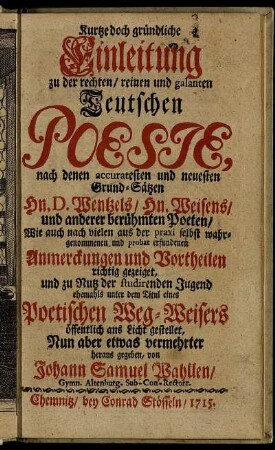 Kurtze doch gründliche
Einleitung
zu der rechten/ reinen und galanten
Teutschen
POESIE,
nach denen accuratesten und neuesten
Grund-Sätzen
Hn. D. Wentzels/ Hn. Weisens/
und anderer berühmten Poeten/
Wie auch nach vielen aus der praxi selbst wahr-
genommenen und probat erfundenen
Anmerckungen und Vortheilen
richtig gezeiget,
und zu Nutz der studirenden Jugend
ehemahls unter dem Titul eines
Poetischen Weg-Weisers
öffentlich ans Licht gestellet,
Nun aber etwas vermehrter
heraus gegeben, von
Johann Samuel Wahllen/
Gymn. Altenburg. Sub-Con-Rectore.
Chemnitz/ bey Conrad Stösseln/ 1715.